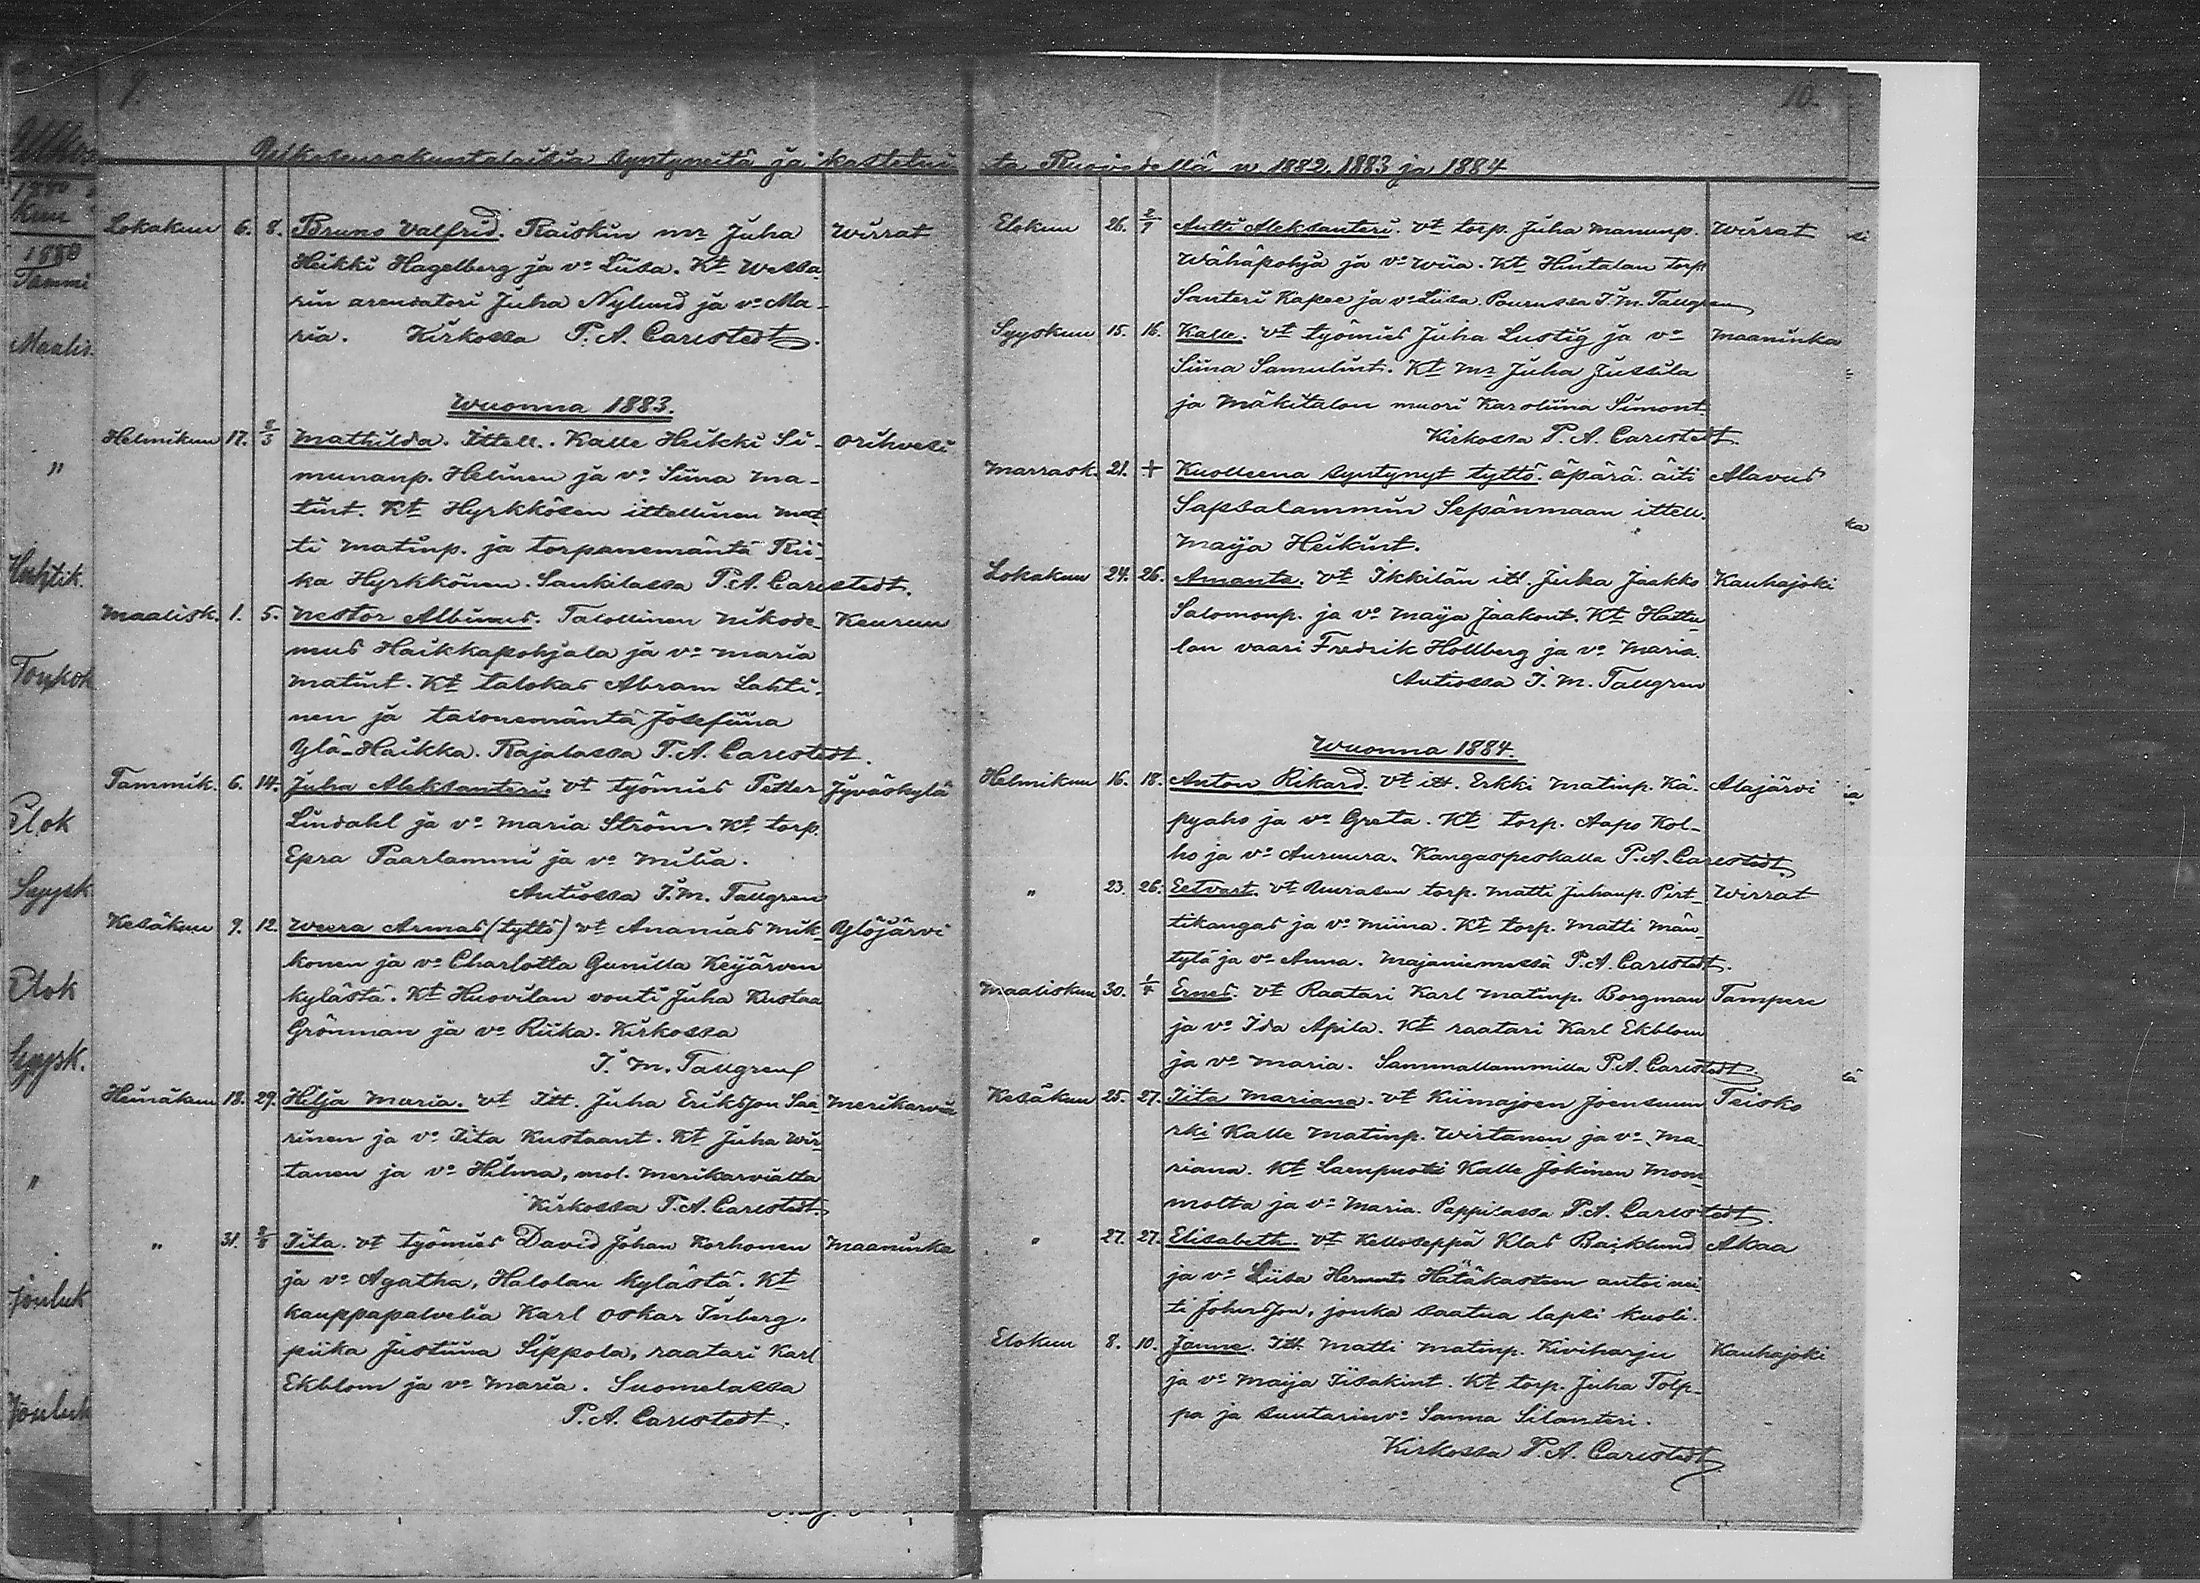 9.
Ulkoseurakuntalaisia syntyneitä ja kastetui
Lokakuu 6. 8. Bruno Valfrid. Raiskin mr Juha Wirrat
Heikki Hagelberg ja vo Liisa. Kt Wessa-
rin arendatori Juha Nylund ja vo Ma-
ria. Kirkossa P. A. Carlstedt.
Wuonna 1883.
Helmikuu 17. 2/3 Mathilda. Ittell. Kalle Heikki Si- Orihvesi
munanp. Helinen ja vo Siina Ma-
tint. Kt Hyrkkösen ittellinen Mat
ti Matinp. ja torpanemäntä Rii-
ka Hyrkkönen. Sankilassa P. A. Carlstedt.
Maalisk. 1. 5. Nestor Albinus. Talollinen Nikode- Keuruu
mus Haikkapohjala ja vo Maria
Matint. Kt talokas Abram Lahti-
nen ja talonemäntä Josefiina
Ylä-Haikka. Rajalassa P. A. Carlstedt.
Tammik. 6. 14. Juha Aleksanteri. vt työmies Petter Jyväskylä
Lindahl ja vo Maria Ström. Kt torp.
Epra Paarlammi ja vo Milia.
Antiossa I. M. Tallgren
Kesäkuu 9. 12. Weera Armas (tyttö) vt Ananias Mik- Ylöjärvi
konen ja vo Charlotta Gunilla Keijärven
kylästä. Kt Huovilan vouti Juha Kustaa
Grönman ja vo Riika. Kirkossa
I. M. Tallgren
Heinäkuu 18. 29. Hilja Maria. vt Itt. Juha Eriksson Saa- Merikarvia
rinen ja vo Iita Kustaant. Kt Juha Wir-
tanen ja vo Hilma, mol. Merikarvialta
Kirkossa P. A. Carlstedt.
" 31. 2/8 Iita. vt työmies David Johan Korhonen Maaninka
ja vo Agatha, Halolan kylästä. Kt
kauppapalvelia Karl Oskar Inberg.
piika Justiina Sippola, raatari Karl
Ekblom ja vo Maria. Suomelassa
P. A. Carlstedt.
10.
ta Ruovedellä v. 1882, 1883 ja 1884
Elokuu 26. 2/9 Antti Aleksanteri. vt torp. Juha Manunp. Wirrat
Wähäpohja ja vo Wiia. Kt Hintalan torp.
Santeri Kapee ja vo Liisa. Pourussa I. M. Tallgren
Syyskuu 15. 16. Kalle. vt työmies Juha Lustig ja vo Maaninka
Siina Samulint. Kt mr Juha Jussila
ja Mäkitalon muori Karoliina Simont.
Kirkossa P. A. Carlstedt.
Marrask. 21. + Kuolleena syntynyt tyttö. äpärä. äiti Alavus
Sapsalammin Sepänmaan ittell.
Maija Heikint.
Lokakuu 24. 26. Amanta. vt Ikkilän itt. Juha Jaakko Kauhajoki
Salomonp. ja vo Maija Jaakont. Kt Hattu-
lan vaari Fredrik Hollberg ja vo Maria.
Antiossa I. M. Tallgren
Wuonna 1884.
Helmikuu 16. 18. Anton Rikard. vt itt. Erkki Matinp. Kä- Alajärvi
pyaho ja vo Greta. Kt torp. Aapo Kol-
ho ja vo Auruura. Kangaspeskalla P. A. Carlstedt
" 23. 26. Eetvart. vt Suurasen torp. Matti Juhanp. Pirt- Wirrat
tikangas ja vo Miina. Kt torp. Matti Män-
tylä ja vo Anna. Majaniemessä P. A. Carlstedt.
Maaliskuu 30. 1/4 Ernes. vt Raatari Karl Matinp. Borgman Tampere
ja vo Ida Apila. Kt raatari Karl Ekblom
ja vo Maria. Sammallammilla P. A. Carlstedt.
Kesäkuu 25. 27. Iita Mariana. vt Kiimajoen Joensuun Teisko
rki Kalle Matinp. Wirtanen ja vo Ma-
riana. Kt Lampuoti Kalle Jokinen Mom-
molta ja vo Maria. Pappilassa P. A. Carlstedt.
" 27. 27. Elisabeth. vt Kelloseppä Klas Baiklund Akaa
ja vo Liisa Hermant. Hätäkasteen antoi nei
ti Johnsson, jonka saatua lapsi kuoli.
Elokuu 8. 10. Janne. Itt. Matti Matinp. Kiviharju Kauhajoki
ja vo Maija Iisakint. Kt torp. Juha Tolp-
pa ja suutarinvo Sanna Silanteri.
Kirkossa P. A. Carlstedt